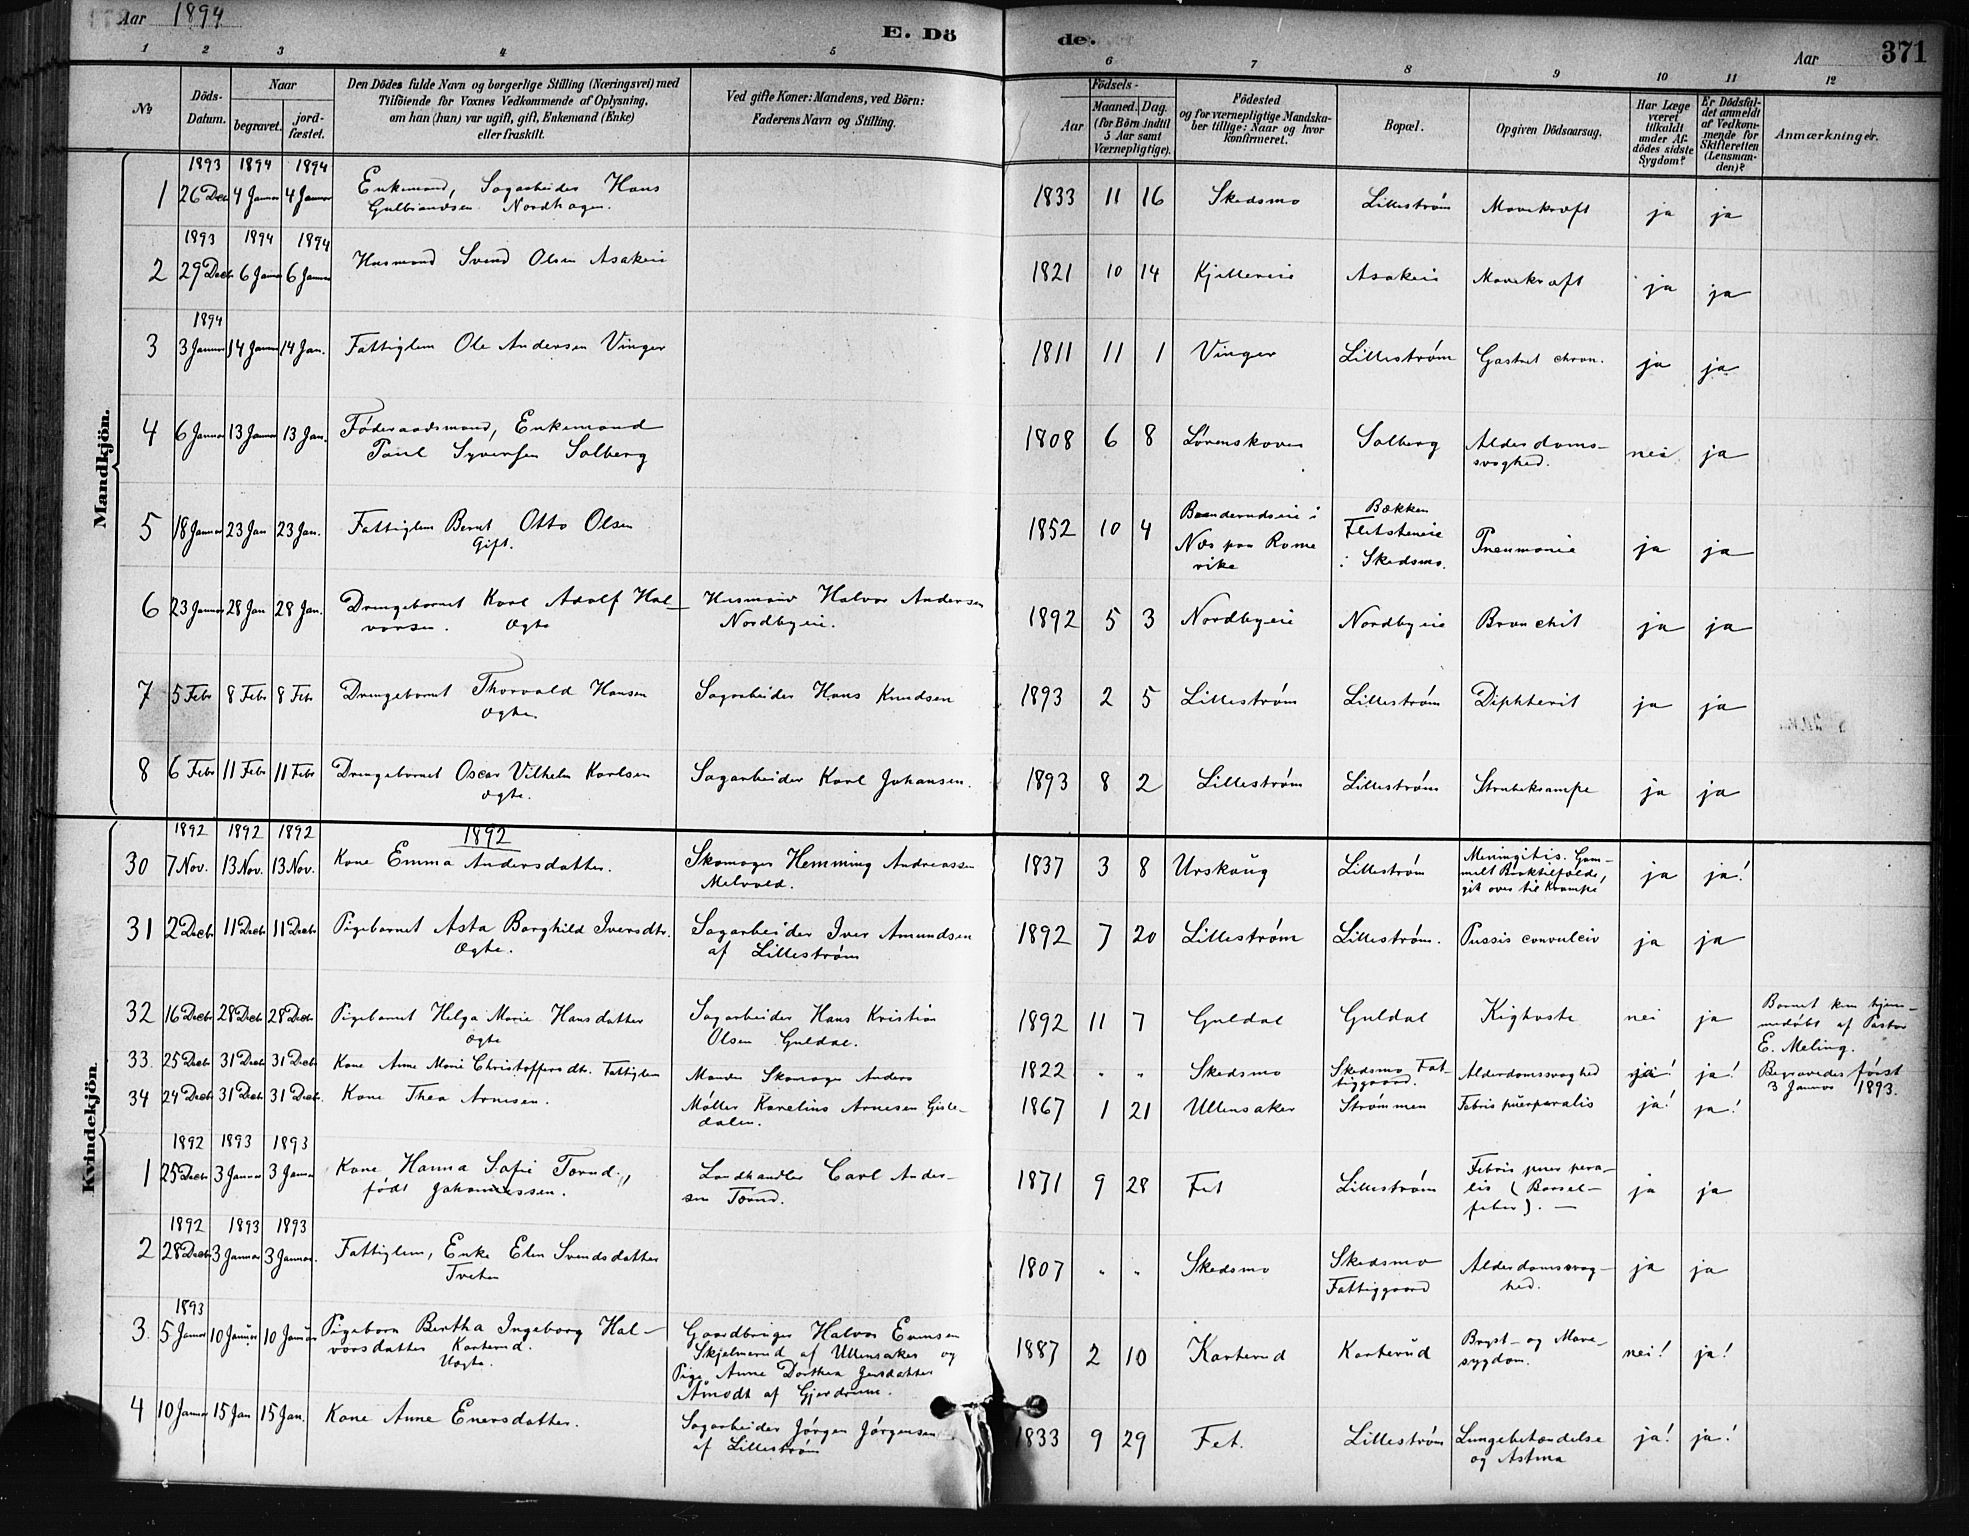 Aar 1894
E. Dö
de.
Aar
371
1 2 3 4 5 6 7 8 9 10 11 12
No.
Döds-Datum.
Naar
begravet.
jord-fæstet.
Den Dödes fulde Navn og borgerlige Stilling (Næringsvei) med
Tilföiende for Voxnes Vedkommende af Oplysning,
om han (hun) var ugift, gift, Enkemand (Enke)
eller fraskilt.
Ved gifte Koner: Mandens, ved Börn:
Faderens Navn og Stilling.
Födsels-
Aar
Maaned. Dag.
(for Börn indtil
5 Aar samt
Værnepligtige).
Födested
og for værnepligtige Mandska-
ber tillige: Naar og hvor
konfirmeret.
Bopæl.
Opgiven Dödsaarsag.
Har Læge
været
tilkaldt
under Af-
dödes sidste
Sygdom?
Er Dödsfal-
det anmeldt
af Vedkom-
mende for
Skifteretten
(Lensman-
den)?
Anmærkninger.
Mandkjön.
1893 1894 1894
1 26 Dec 4 Januar 4 Januar Enkemand, Sagarbeider Hans 1833 11 16 Skedsmo Lillestrøm Mavekræft ja ja
Gulbrandsen Nordhagen.
1893 1894 1894
2 29 Decb 6 Januar 6 Januar Husmand Svend Olsen Asakeie 1821 10 14 Kjellereie Asakeie Mavekræft ja ja
1894
3 3 Januar 14 Januar 14 Jan. Fattiglem Ole Andersen Vinger 1811 11 1 Vinger Lillestrøm Gastrit chron. ja ja
4 6 Januar 13 Januar 13 Jan. Føderaadsmand, Enkemand 1808 6 8 Lørenskoven Solberg Alderdoms-
Paul Syversen Solberg svaghed. nei ja
5 18 Januar 23 Jan 23 Jan. Fattiglem Bernt Otto Olsen 1852 10 4 i Bækken
Gift. Næs paa Rome
rike i Skedsmo. Pneumonie ja ja
6 23 Januar 28 Jan 28 Jan. Drengebarnet Karl Adolf Hal- Husmand Halvor Andersen 1892 5 3 Nordbyeie Nordbyeie Bronchit ja ja
vorsen. Ægte Nordbyeie.
7 5 Febr 8 Febr 8 Febr Drengebarnet Thorvald Hansen Sagarbeider Hans Knudsen 1893 2 5 Lillestrøm Lillestrøm Diphterit ja ja
Ægte.
8 6 Febr 11 Febr 11 Febr Drengebarnet Oscar Vilhelm Karlsen Sagarbeider Karl Johansen. 1893 8 2 Lillestrøm Lillestrøm Strubekrampe ja ja
Ægte.
Kvindekjön.
1892 1892 1892 1892
30 7 Nov. 13 Nov. 13 Nov. Kone Emma Andersdatter. Skomager Hemming Andreassen 1837 3 8 Urskoug Lillestrøm Meningitis. Gam-
Melvold. melt
git over til Krampe ja ja!
31 2 Decb 11 Decb 11 Decb Pigebarnet Asta Borghild Iversdtr. Sagarbeider Iver Amundsen 1892 7 20 Lillestrøm Lillestrøm. Tussis convulsiv ja ja
Ægte. af Lillestrøm
32 16 Decb 28 Decb 28 Decb Pigebarnet Helga Marie Hansdatter Sagarbeider Hans Kristian 1892 11 7 Guldal Guldal Kighoste nei ja Barnet kun hjem-
Ægte Olsen Guldal. medøbt af Pastor
E. Meling.
33. 25 Decb 31 Decb 31 Decb Kone Anne Marie Christoffersdtr. Fattiglem Manden Skomager Anders 1822 " " Skedsmo Skedsmo Fat-
tiggaard. Alderdomssvaghed ja! Begravedes først
3 Januar 1893.
34 24 Decb 31 Decb 31 Decb. Kone Thea Arnesen. Møller Karelius Arnesen Gisle-
dalen. 1867 1 21 Ullensaker Strømmen Febris puerperalis ja! ja!
1892 1893 1893
1 25 Decb 3 Januar 3 Januar Kone Hanna Sofie Torud, Landhandler Carl Ander- 1871 9 28 Fet Lillestrøm Febris puerpera-
født Johannessen. sen Torud. lis (Barsel-
feber). — ja ja
1892 1893 1893
2 28 Decb 3 Januar 3 Januar. Fattiglem, Enke Elen Svendsdatter 1807 " " Skedsmo Skedsmo Alderdomssvag-
Tveten Fattiggaard hed. ja ja
1893
3. 5 Januar 10 Januar 10 Januar Pigebarn Bertha Ingeborg Hal- Gaardbruger Halvor Evensen 1887 2 10 Karterud Karterud Bryst- og Mave-
vorsdatter Karterud. Skjelmerud af Ullensaker og sygdom. nei! ja!
Uægte. Pige Anne Dorthea Jensdatter
Åmodt af Gjerdrum.
4 10 Januar 15 Jan 15 Jan. Kone Anne Enersdatter. Sagarbeider Jørgen Jørgensen 1833 9 29 Fet. Lillestrøm Lungebetændelse ja! ja!
af Lillestrøm og Astma